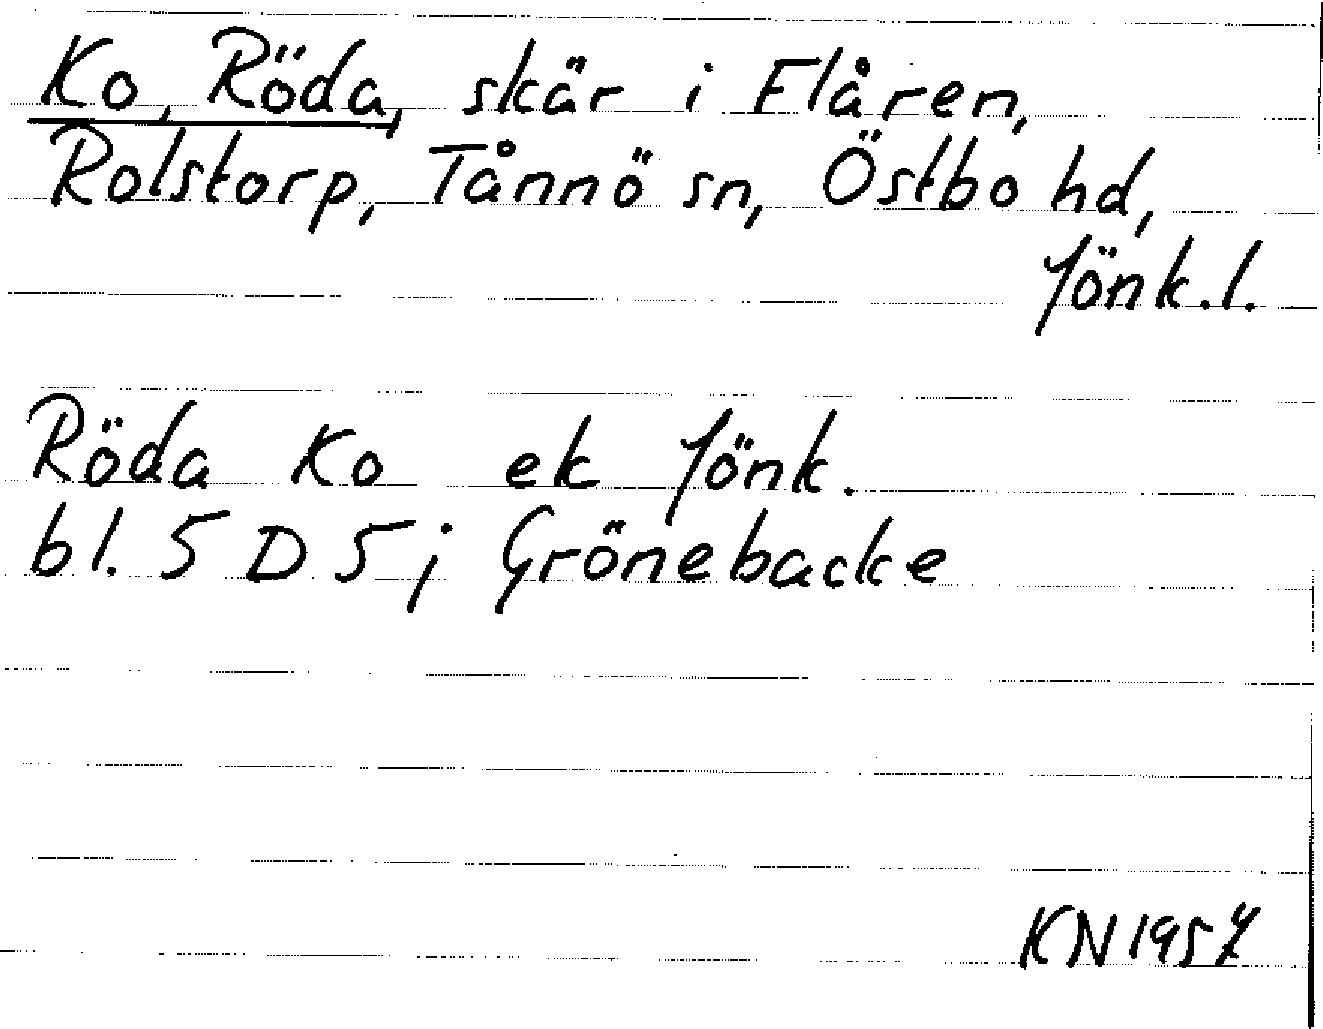 Ko, Röda, skär i Flåren,
Rolstorp, Tånnö sn, Östbo hd,
Jönk.l.
Röda Ko ek Jönk.
bl. 5 D 5 j Grönebacke
KN 1957